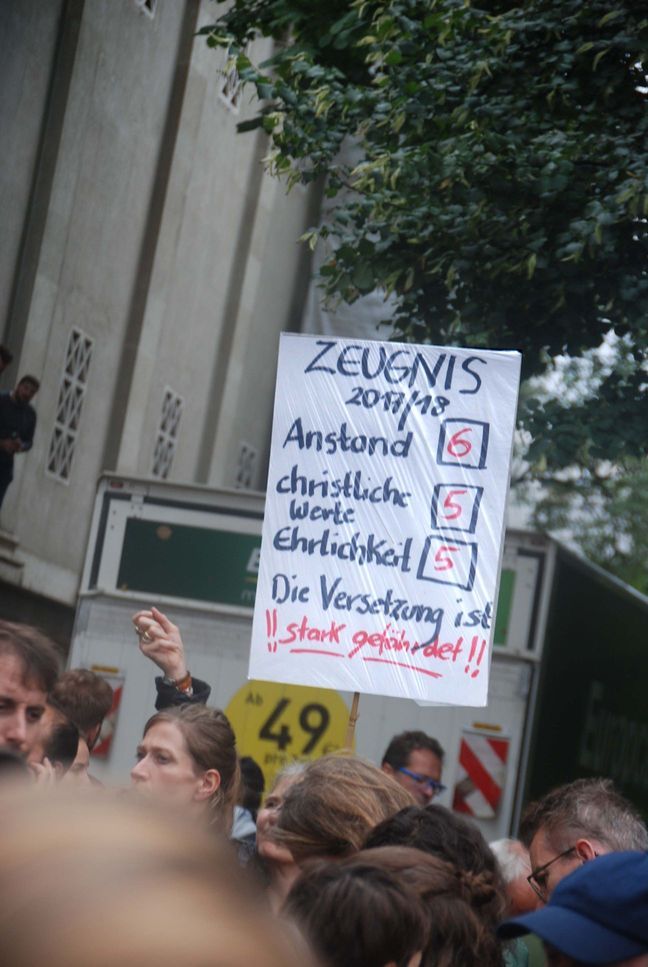 ZEUGNIS
2017/18
Anstand 6
christliche
Werte 5
Ehrlichkeit 5
Die Versetzung ist
!! stark gefährdet!!
Ab
49